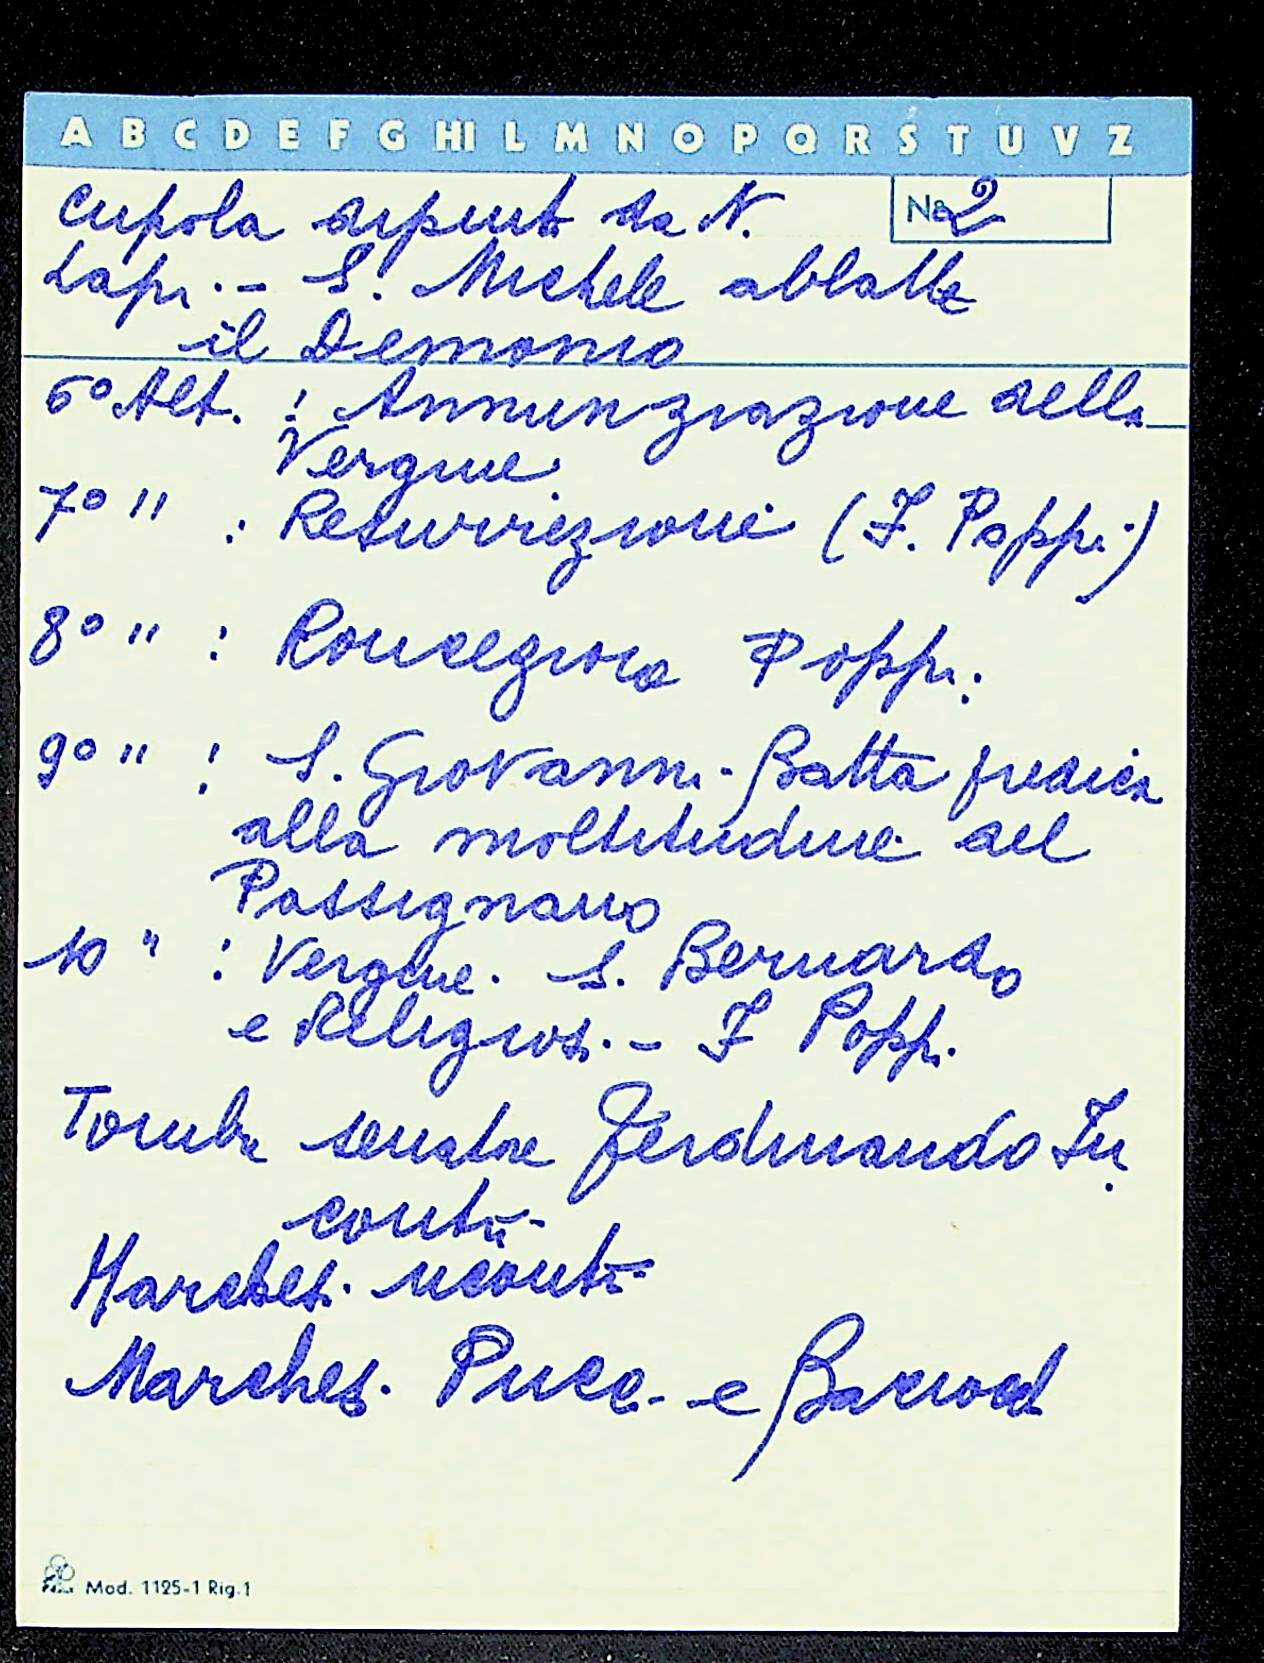 A B C D E F G HI L M N O P Q R S T U V Z
Cupola dipint. da N. № 2
Lapi. - S. Michele abbatte
il Demonio
6° Alt. : Annunziazione della
Vergine
7° " : Resurrezione (F. Poppi)
8° " : Poppi.
9° " : S. Giovanni Batta predica
alla moltitudine del
Passignano
10 " : Vergine. S. Bernardo
e Religiosi. - F Poppi.
Tomba senatore Ferdinando In
contri -
Marchesi.
Marchesi. Pucci - e
Mod. 1125-1 Rig.1